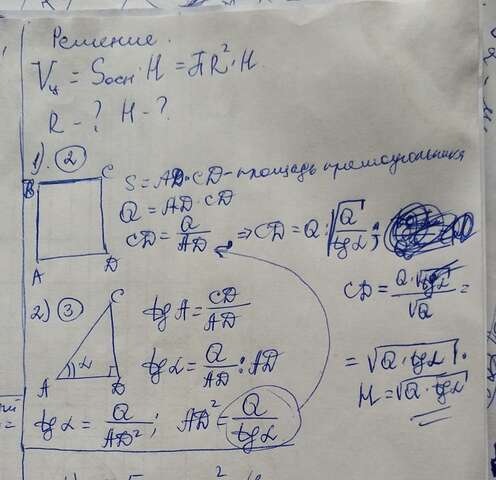 Решение.
Vц = Sосн · H = πR²·H.
R - ? H - ?
1). 2
B C
A D
S = AD·CD - площадь прямоугольника
Q = AD·CD
CD = Q/AD ⇒ CD = Q : √(Q/tgα);
CD = Q·√tgα/√Q =
= √(Q·tgα).
H = √(Q·tgα)
2) 3
C
A α D
tgA = CD/AD
tgα = Q/AD : AD
tgα = Q/AD²; AD² = Q/tgα